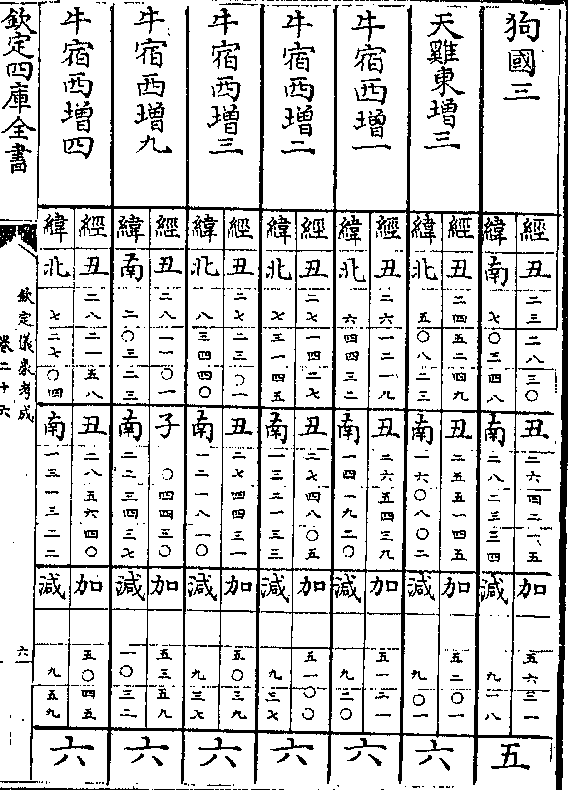 狗國三
經丑二三二八三〇丑二六四二一五加五六二一
緯南七〇三四八南二八二三三四減九一八
五
天雞東增三
經丑二四五二四九丑二五五一四五加五二〇一
緯北五〇八二三南一六〇八〇二減九〇一
六
牛宿西增一
經丑二六一二一九丑二六五四三九加五一二一
緯北六四四三二南一四一九二〇減九二〇
六
牛宿西增二
經丑二七一四二七丑二七四八〇五加五一〇〇
緯北七三一四五南一三二一三三減九三七
六
牛宿西增三
經丑二七二三〇一丑二七四四三一加五〇三九
緯北八三四四〇南一二一八一〇減九三七
六
牛宿西增九
經丑二八一一〇一子〇四四三〇加五三五九
緯南二〇三二三南二二三四三七減一〇三二
六
牛宿西增四
經丑二八二一五八丑二八五六四〇加五〇四五
緯北七二七〇四南一三一三二二減九五九
六
欽定四庫全書
欽定儀象考成
卷二十六
六